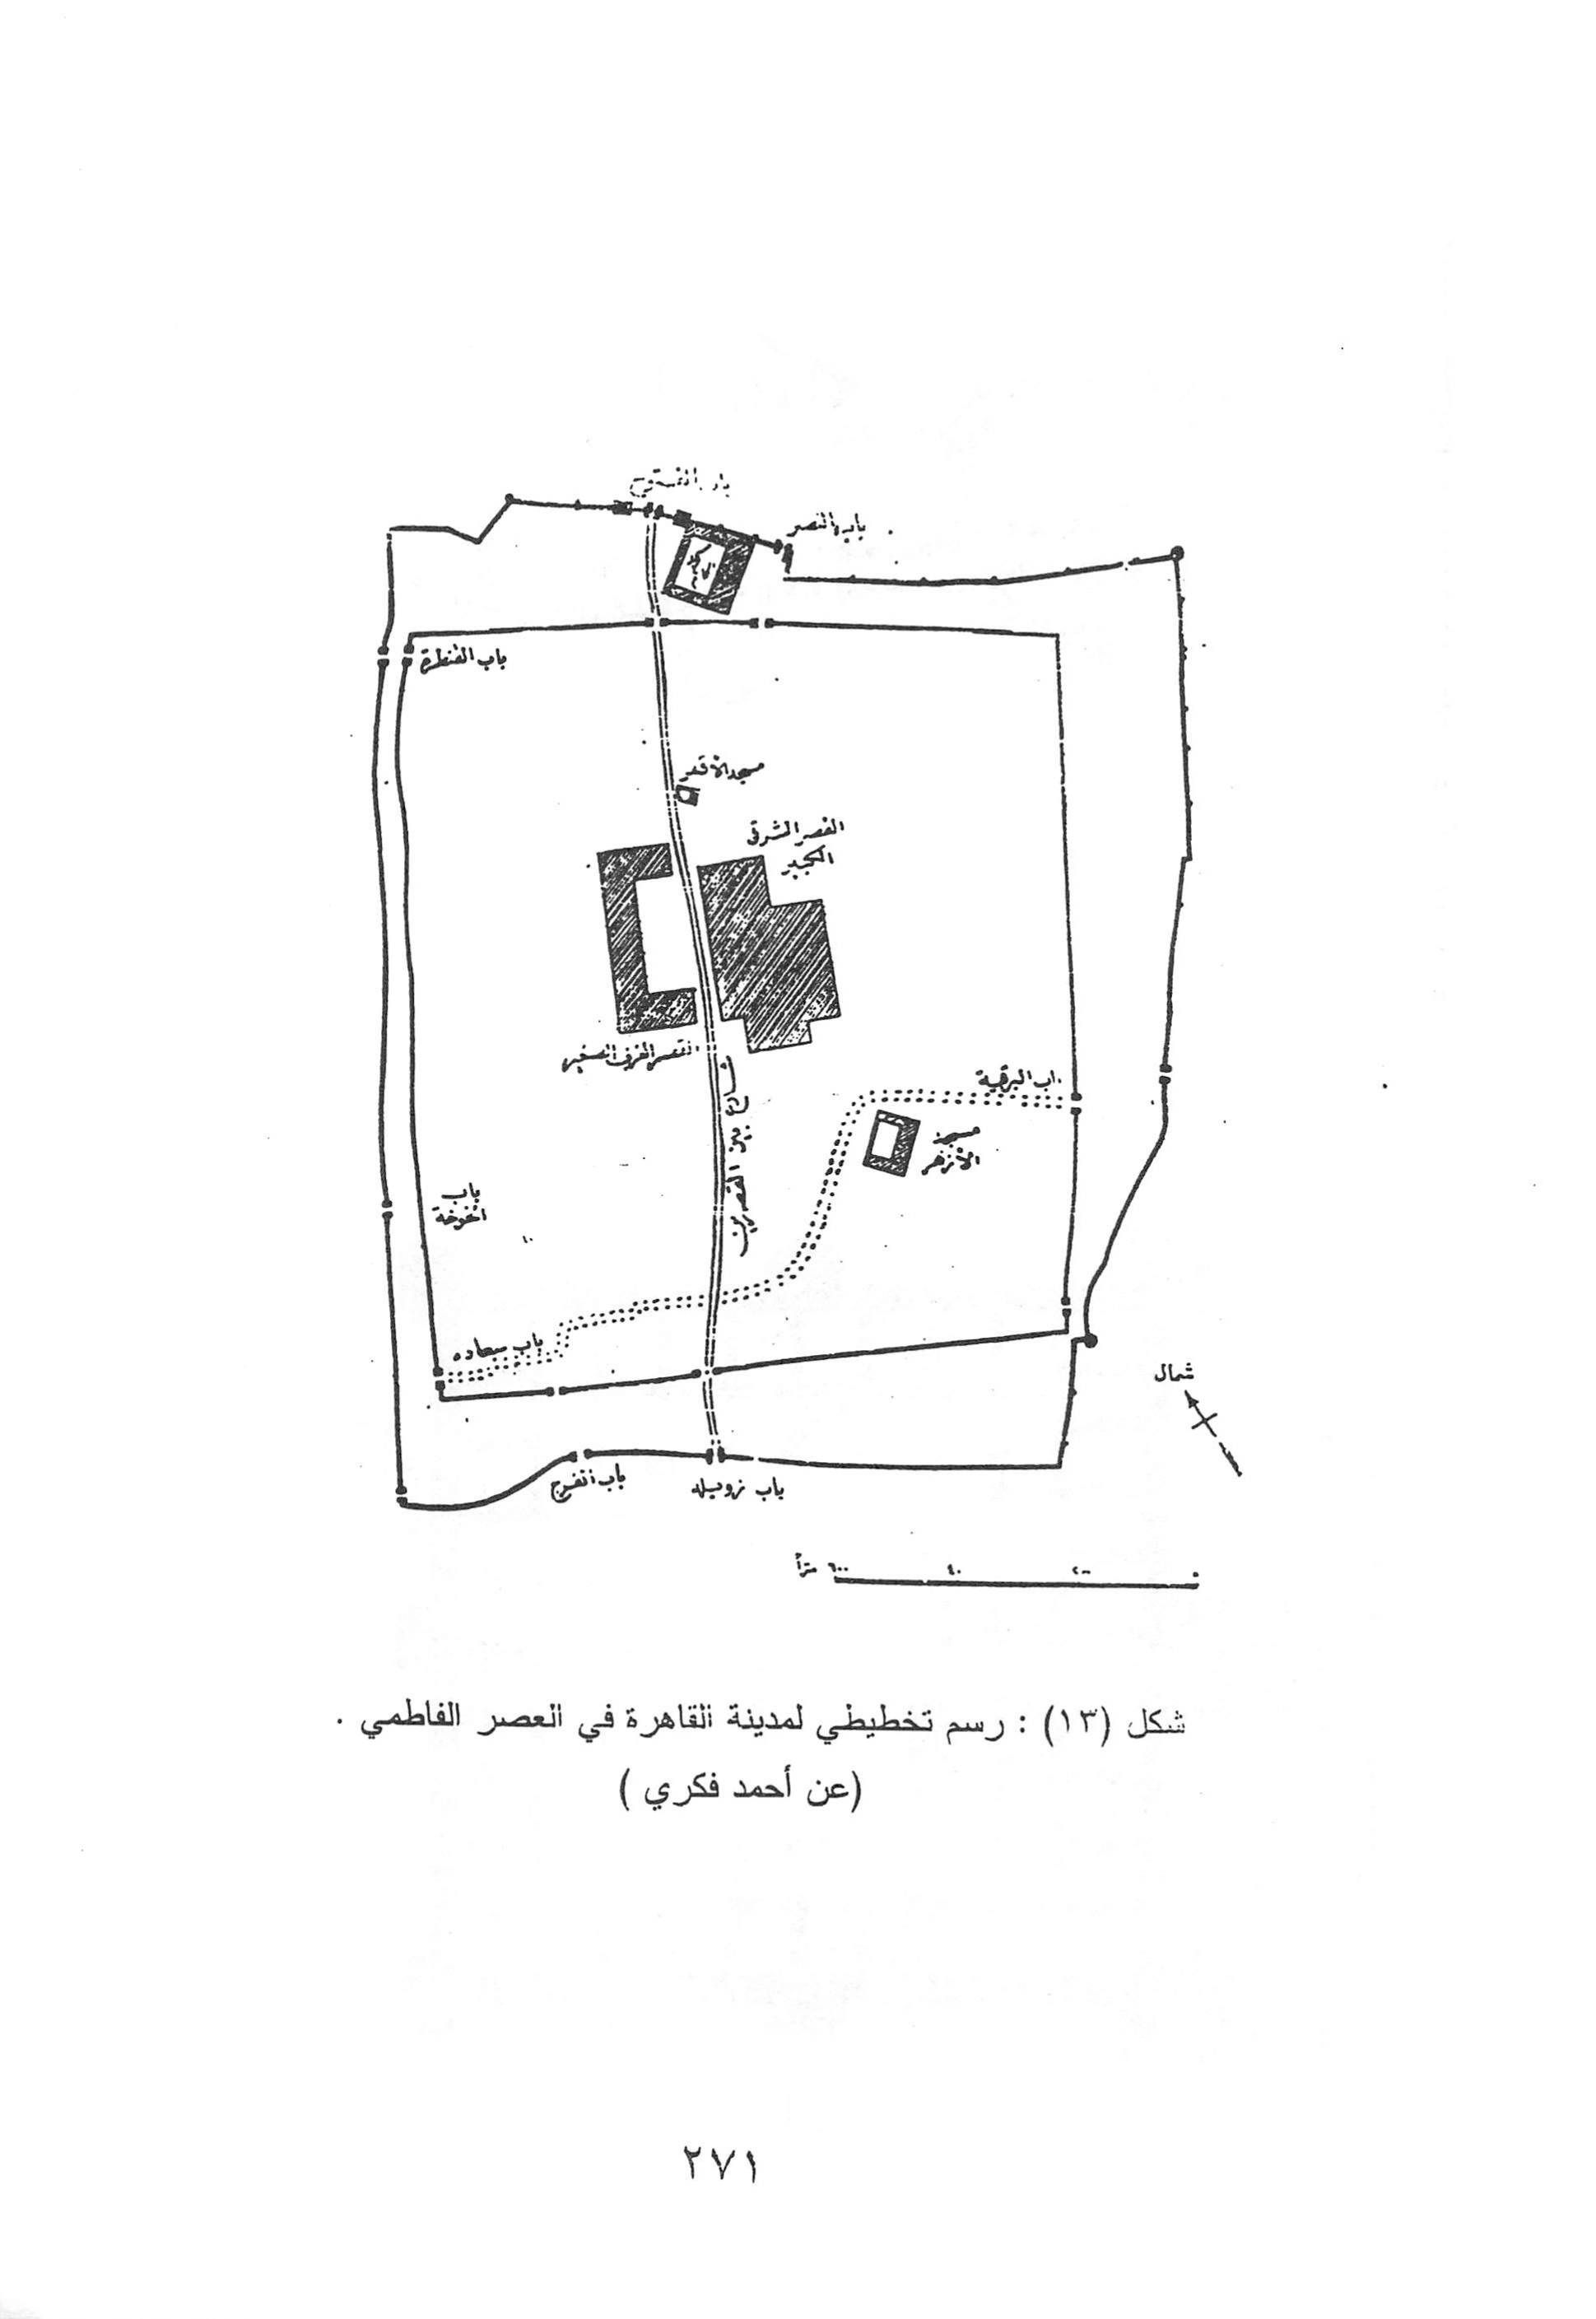 باب الفتوح
باب النصر
الحاكم
باب القنطرة
مسجد الأقمر
القصر الشرقي
الكبير
القصر الغربي الصغير
شارع بين القصرين
باب البرقية
مسجد
الأزهر
باب
الخوخة
باب سعاده
شمال
باب الفرج
باب زويله
٦٠٠ مترًا
شكل (١٣) : رسم تخطيطي لمدينة القاهرة في العصر الفاطمي .
(عن أحمد فكري )
٢٧١